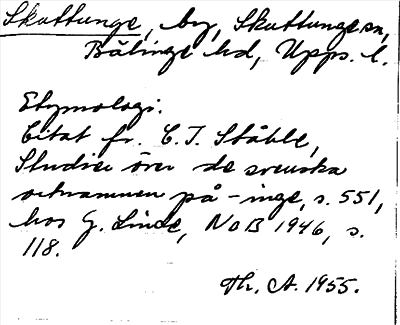 Skuttunge, by, Skuttunge sn,
Bälinge hd, Upps. l.
Etymologi.
Citat fr. C. I. Ståhle,
Studier över de svenska
ortnamnen på -inge, s. 551,
hos G. Linde, NoB 1946, s.
118.
Th. A. 1955.